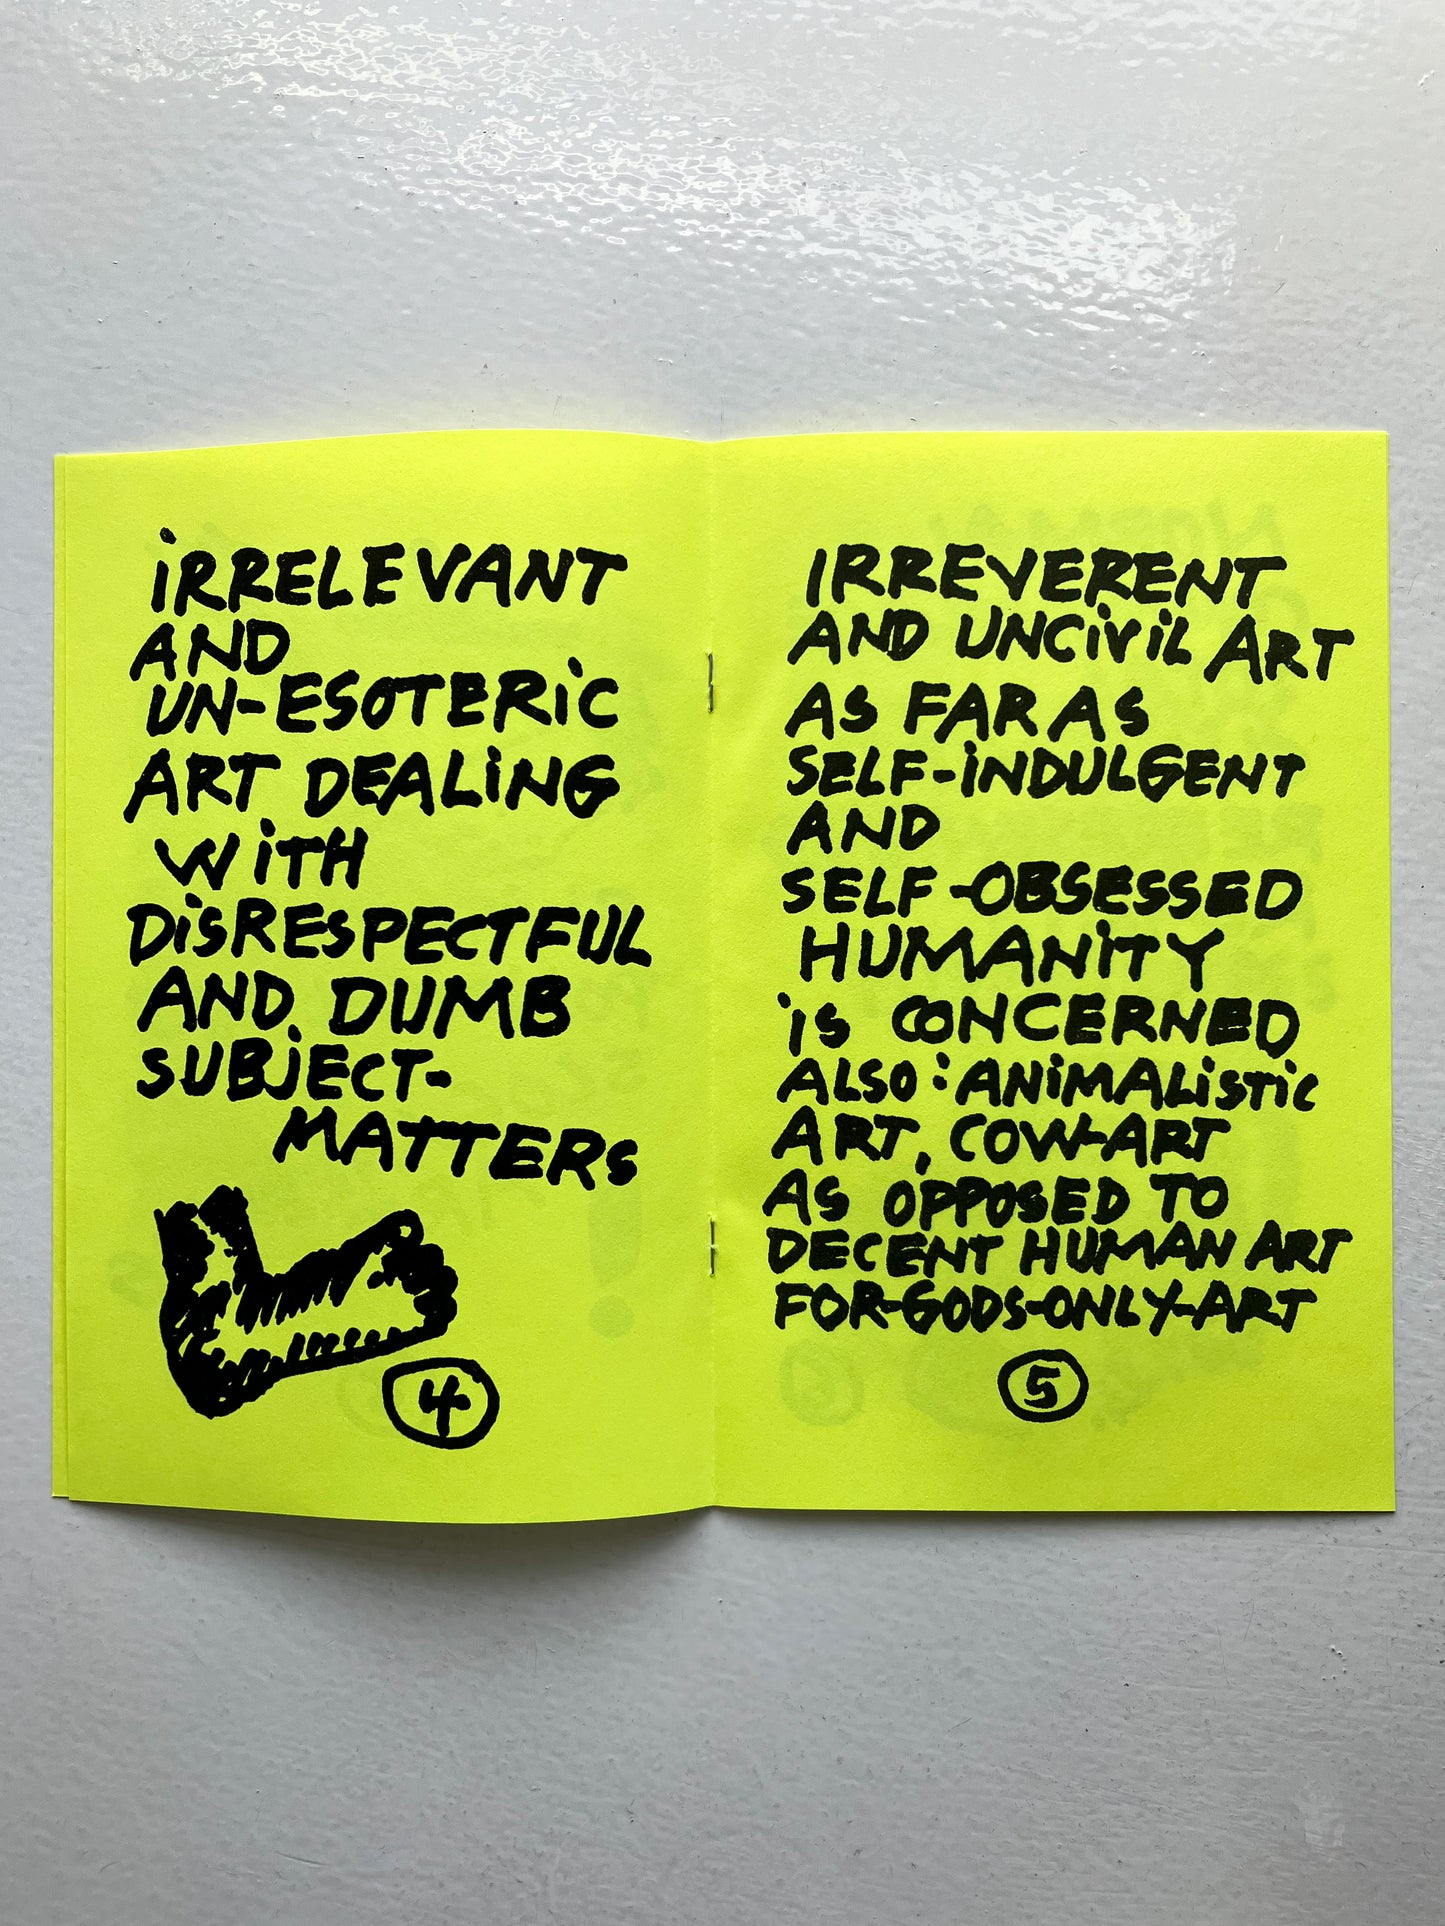 iRRELEVANT
AND
UN-ESOTERiC
ART DEALiNG
WiTH
DiSRESPECTFUL
AND DUMB
SUBjECT-
MATTERS
4
IRREVERENT
AND UNCiViL ART
AS FAR AS
SELF-iNDULGENT
AND
SELF-OBSESSED
HUMANiTY
is CONCERNED
ALSO : ANiMALiSTiC
ART, COW-ART
AS OPPOSED TO
DECENT HUMAN ART
FOR-GODS-ONLY-ART
5